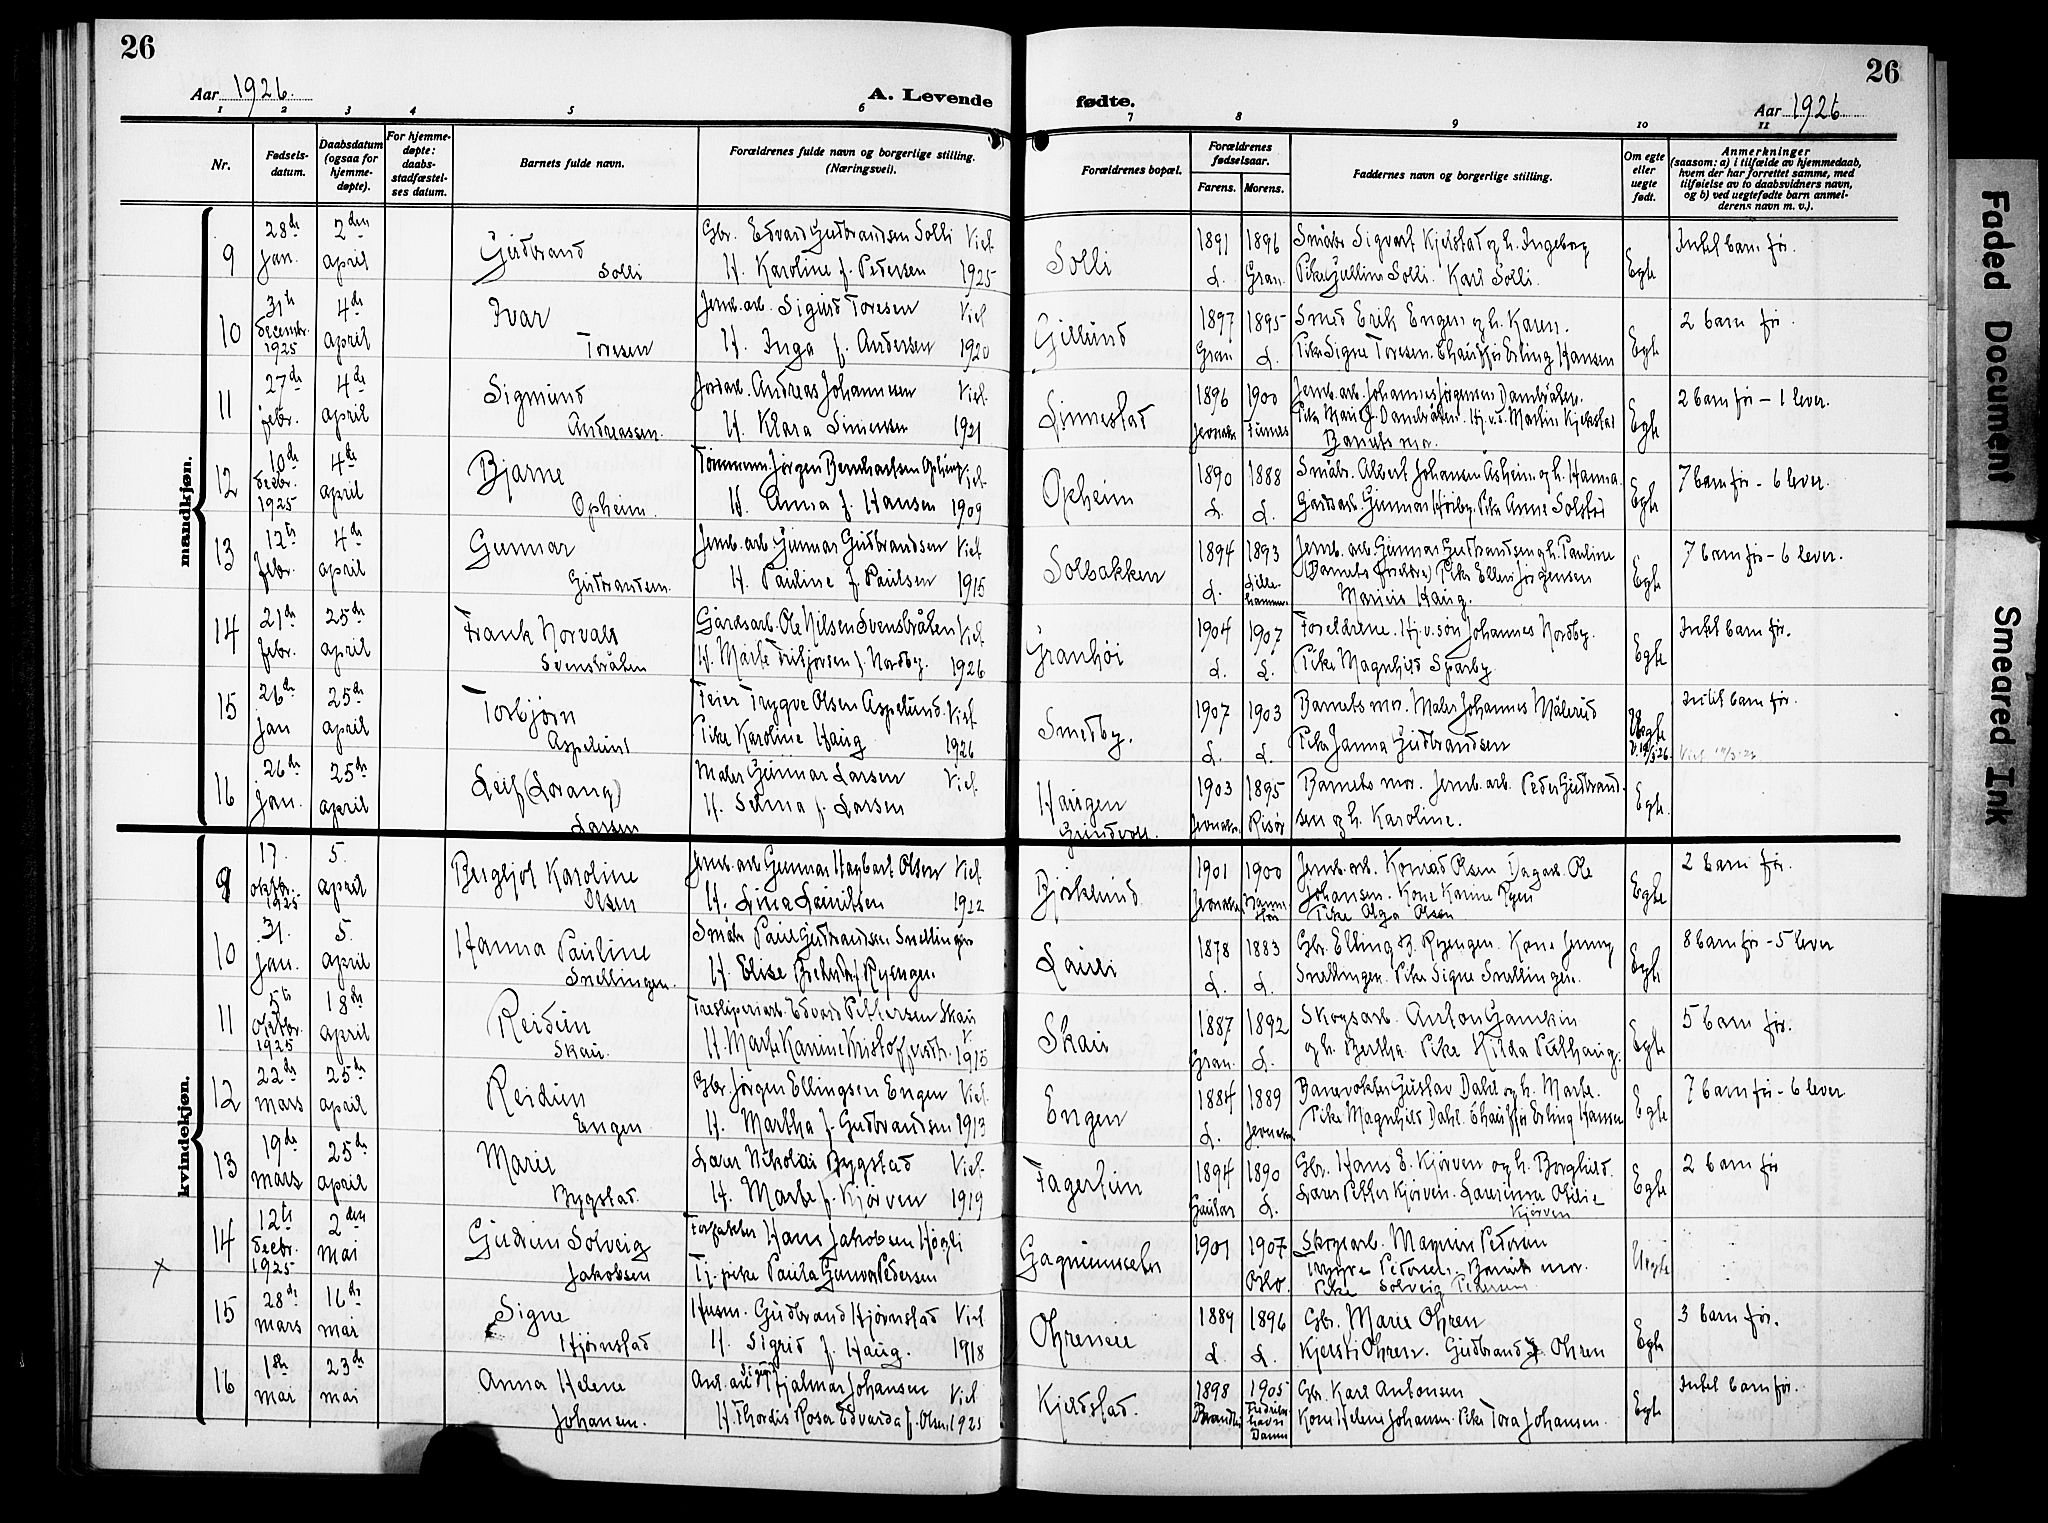 26
26
Aar 1926.
A. Levende
fødte.
Aar 1926
1 2 3 4 5 6 7 8 9 10 11
Nr.
Fødsels-datum.
Daabsdatum (ogsaa for hjemme-døpte).
For hjemme-døpte: daabs-stadfæstel-ses datum.
Barnets fulde navn.
Forældrenes fulde navn og borgerlige stilling. (Næringsvei).
Forældrenes bopæl.
Forældrenes fødselsaar.
Farens. Morens.
Faddernes navn og borgerlige stilling.
Om egte eller uegte født.
Anmerkninger
(saasom: a) i tilfælde av hjemmedaab, hvem der har forrettet samme, med tilføielse av to daabsvidners navn, og b) ved uegtefødte barn anmel-derens navn m. v.).
mandkjøn.
9 28de Jan. 2den april Gudbrand Solli Gbr. Edvard Gudbrandsen Solli Viet H. Karoline f. Pedersen 1925 Solli 1891 L. 1896 Gran Småbr Sigvart Kjelstad og h. Ingeborg Pike Gulline Solli. Karl Solli. Egte Intet barn før.
10 31te decembr. 1925 4de april Ivar Toresen Jernb. arb. Sigurd Toresen Viet H. Inga f. Andersen 1920 Gillund 1897 Gran 1895 L. Smed Erik Engen og h. Karen. Pike Signe Toresen. Chauffør Erling Hansen Egte 2 barn før.
11 27de febr. 4de april Sigmund Andreassen. Jordarb. Andreas Johannesen Viet. H. Klara Simensen 1921 Linnestad 1896 Jevnaker 1900 Furnes Jernb. arb. Johannes Jørgensen Dambråten. Pike Marie J. Dambråten. Hj.v.s. Martin Kjekstad Barnets mor. Egte 2 barn før - 1 lever.
12 10de decbr. 1925 4de april Bjarne Opheim. Tømmerm. Jørgen Bernhartsen Opheim Viet H. Anna f. Hansen 1909 Opheim 1890 L. 1888 L. Småbr. Albert Johansen Åsheim og h. Hanna. Gårdsarb. Gunnar Hørby. Pike Anne Solstad Egte 7 barn før - 6 lever.
13 12te febr. 4de april Gunnar Gudbrandsen. Jernb. arb Gunnar Gudbrandsen Viet H. Pauline f. Paulsen 1915 Solbakken 1894 L. 1893 Lillehammer Jernb. arb Gunnar Gudbrandsen og h. Pauline (Barnets foreldre) Pike Ellen Jørgensen Marius Haug. Egte 7 barn før - 6 lever.
14 21de febr. 25de april Frank Norvald Svensbråten Gårdsarb. Ole Nilsen Svensbråten Viet H. Marte f. Nordby. 1926 Granhøi 1904 L. 1907 L. Foreldrene. Hj.v.søn Johannes Nordby. Pike Magnhild Sparby. Egte Intet barn før.
15 26de Jan 25de april Torbjørn Aspelund Feier Trygve Olsen Aspelund. Viet. Pike Karoline Haug 1926 Smedby. 1907 L. 1903 L. Barnets mor. Maler Johannes Målerud Pike Janna Gudbrandsen Uegte Intet barn før.
16 26de Jan. 25de april Leif (Lorang) Larsen Maler Gunnar Larsen Viet H. Selma f. Larsen Haugen Grindvoll. 1903 Jevnaker. 1895 Risør Barnets mor. Jernb. arb. Peder Gudbrandsen og h. Karoline. Egte.
kvindekjøn.
9 17. oktbr. 1925 5. april Bergljot Karoline Olsen Jernb. arb Gunnar Hagbart Olsen Viet H. Lina Lauritsen 1922 Bjørkelund 1901 Jevnaker 1900 Jernb. arb. Konrad Olsen Dagarb. Ole Johansen. Kone Karine Ryen Pike Olga Olsen Egte 2 barn før.
10 31. Jan. 5. april Hanna Pauline Snellingen. Småbr Paul Gudbrandsen Snellingen H. Elise f. Ryengen. Lauli 1878 L. 1883 L. Gbr. Elling B. Ryengen. Kone Jenny Snellingen. Pike Signe Snellingen. Egte 8 barn før - 5 lever
11 5te oktbr. 1925 18de april Reidun Skau. Tresliperiarb. Edvard Pettersen Skau V. H. Marte Karine 1915 Skau 1887 Gran. 1892 L. Skogsarb. Anton og h. Bertha. Pike Hilda Egte 5 barn før.
12 22de mars 25de april Reidun Engen Gbr. Jørgen Ellingsen Engen Viet. H. Martha f. Gudbrandsen 1913 Engen 1884 L. 1889 Jevnaker Banevokter Gustav Dahl og h. Marte. Pike Magnhild Dahl Chauffør Erling Hansen Egte 7 barn før - 6 lever
13 19de mars 25de april Marie Bygstad. Lærer Nikolai Bygstad Viet. H. Marte f. Kjørven 1919 Fagertun 1894 Gaular 1890 L. Gbr. Hans E. Kjørven og h. Borghild. Lærer Petter Kjørven. Laurenina Otilie Kjørven Egte 2 barn før
14 12te decbr. 1925 2den mai Gudrun Solveig Jakobsen Forpakter Hans Jakobsen Høgli Tj. pike Paula Gunvor Pedersen 1901 1907 Oslo. Skogsarb. Magnus Pedersen Trygve Pedersen. Barnets mor. Pike Solveig Pedersen Uegte
x
15 28de mars 16de mai Signe Hjørnstad Husm. Gudbrand Hjørnstad Viet H. Sigrid f. Haug. 1918 Ohreneie 1889 L. 1896 L. Gbr. Marie Ohren Kjersti Ohren. Gudbrand Ohren Egte 3 barn før.
16 1ste mai 23de mai Anna Helene Johansen. Hjalmar Johansen Viet H. Thordis Rosa Edvarda f. Olsen 1925 Kjeldstad. 1898 Brandbu 1905 Fredrikshavn Danm Gbr. Karl Antonsen Kone Helene Johansen. Pike Tora Johansen. Egte Intet barn før.
Faded Document
Smeared Ink